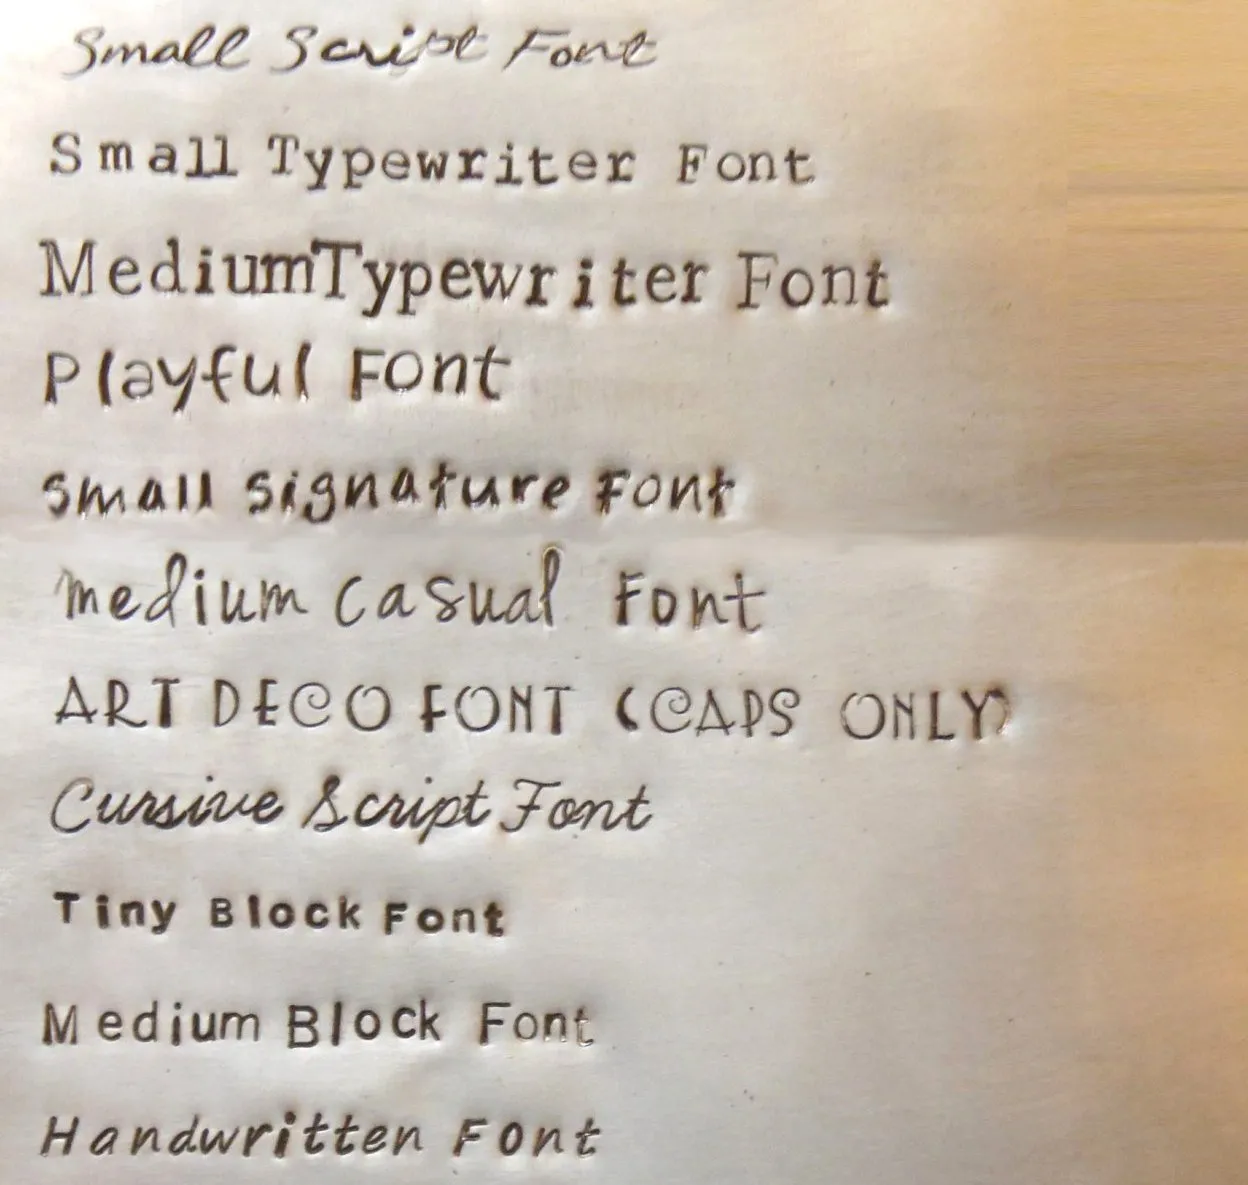 Small Script Font
Small Typewriter Font
MediumTypewriter Font
Playful Font
small signature Font
medium casual Font
ART DECO FONT (CAPS ONLY)
Cursive Script Font
Tiny Block Font
Medium Block Font
Handwritten Font